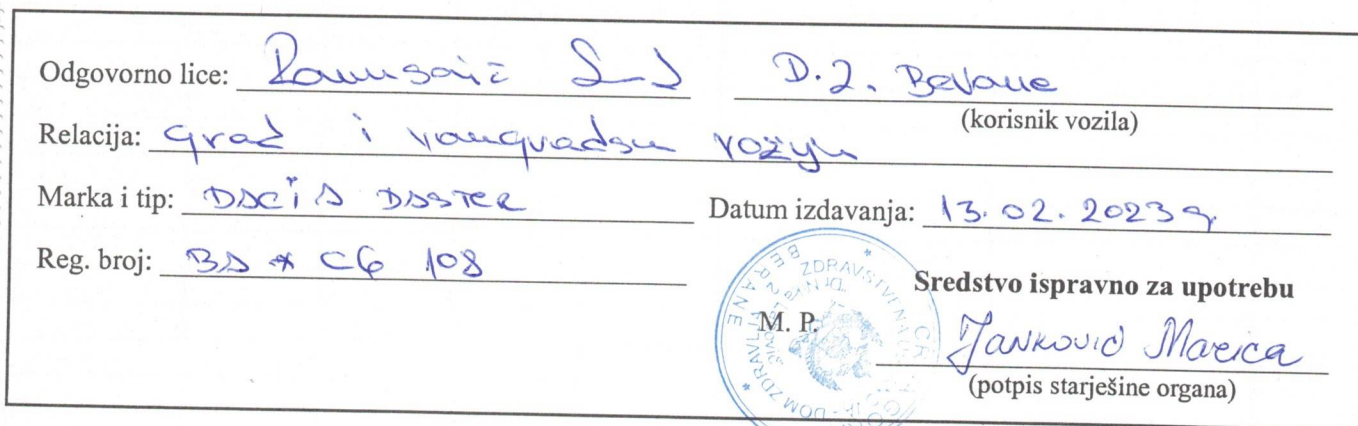 Odgovorno lice: D.Z. Berane
(korisnik vozila)
Relacija: grad i vangradska vožnja
Marka i tip: DACIA DASTER
Datum izdavanja: 13. 02. 2023 g.
Reg. broj: BA * CG 108
Sredstvo ispravno za upotrebu
M. P.
Janković Marica
(potpis starješine organa)
ZDRAVSTVENA
BERANE
DOM ZDRAVLJA